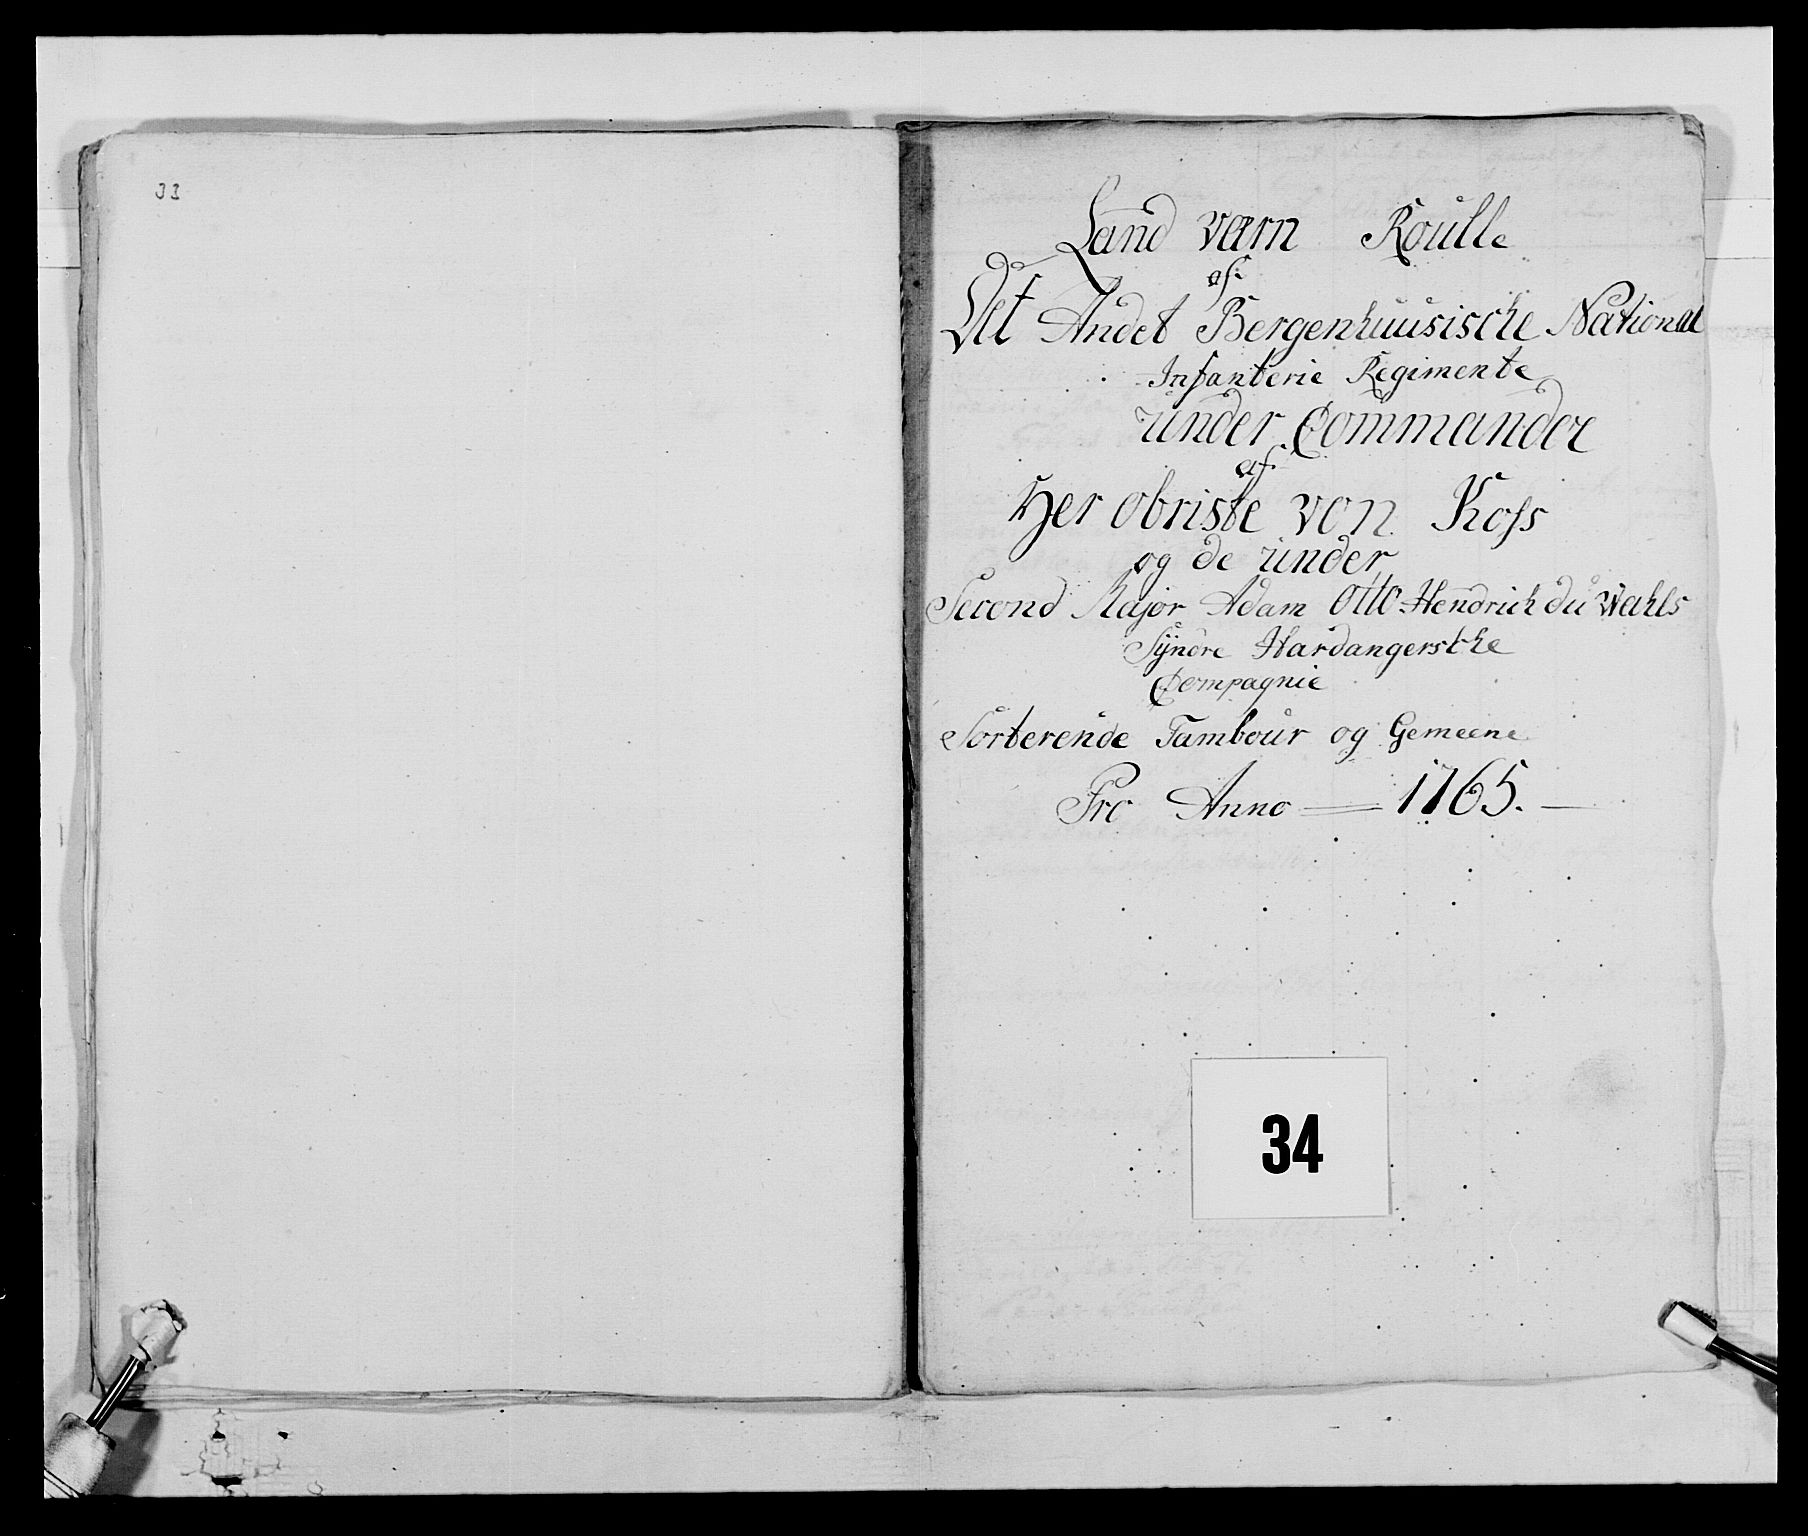 33
Land værn Roulle
af
Det Andet Bergenhuusische National
Infanterie Regimente
under Commander
af
Her obriste von Koss
og de under
Second Major Adam Otto Hendrich du Wahls
Syndre Hardangerske
Compagnie
Sorterende Tambour og Gemeene
Pro Anno 1765.
34